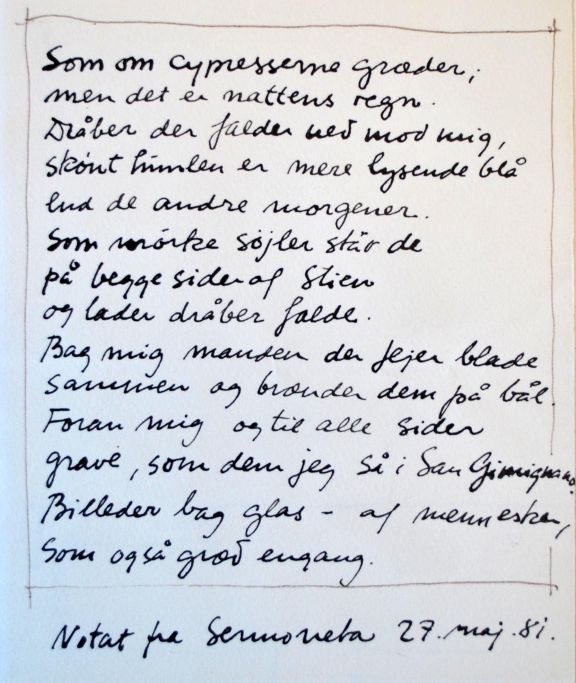 Som om cypresserne græder,
men det er nattens regn.
Dråber der falder ned mod mig,
skønt himlen er mere lysende blå
end de andre morgener.
Som mørke søjler står de
på begge sider af stien
og lader dråber falde.
Bag mig manden der fejer blade
sammen og brænder dem på bål.
Foran mig og til alle sider
grave, som dem jeg så i San Gimignano.
Billeder bag glas – af mennesker,
som også græd engang.
Notat fra Sermoneta 27. maj. 81.